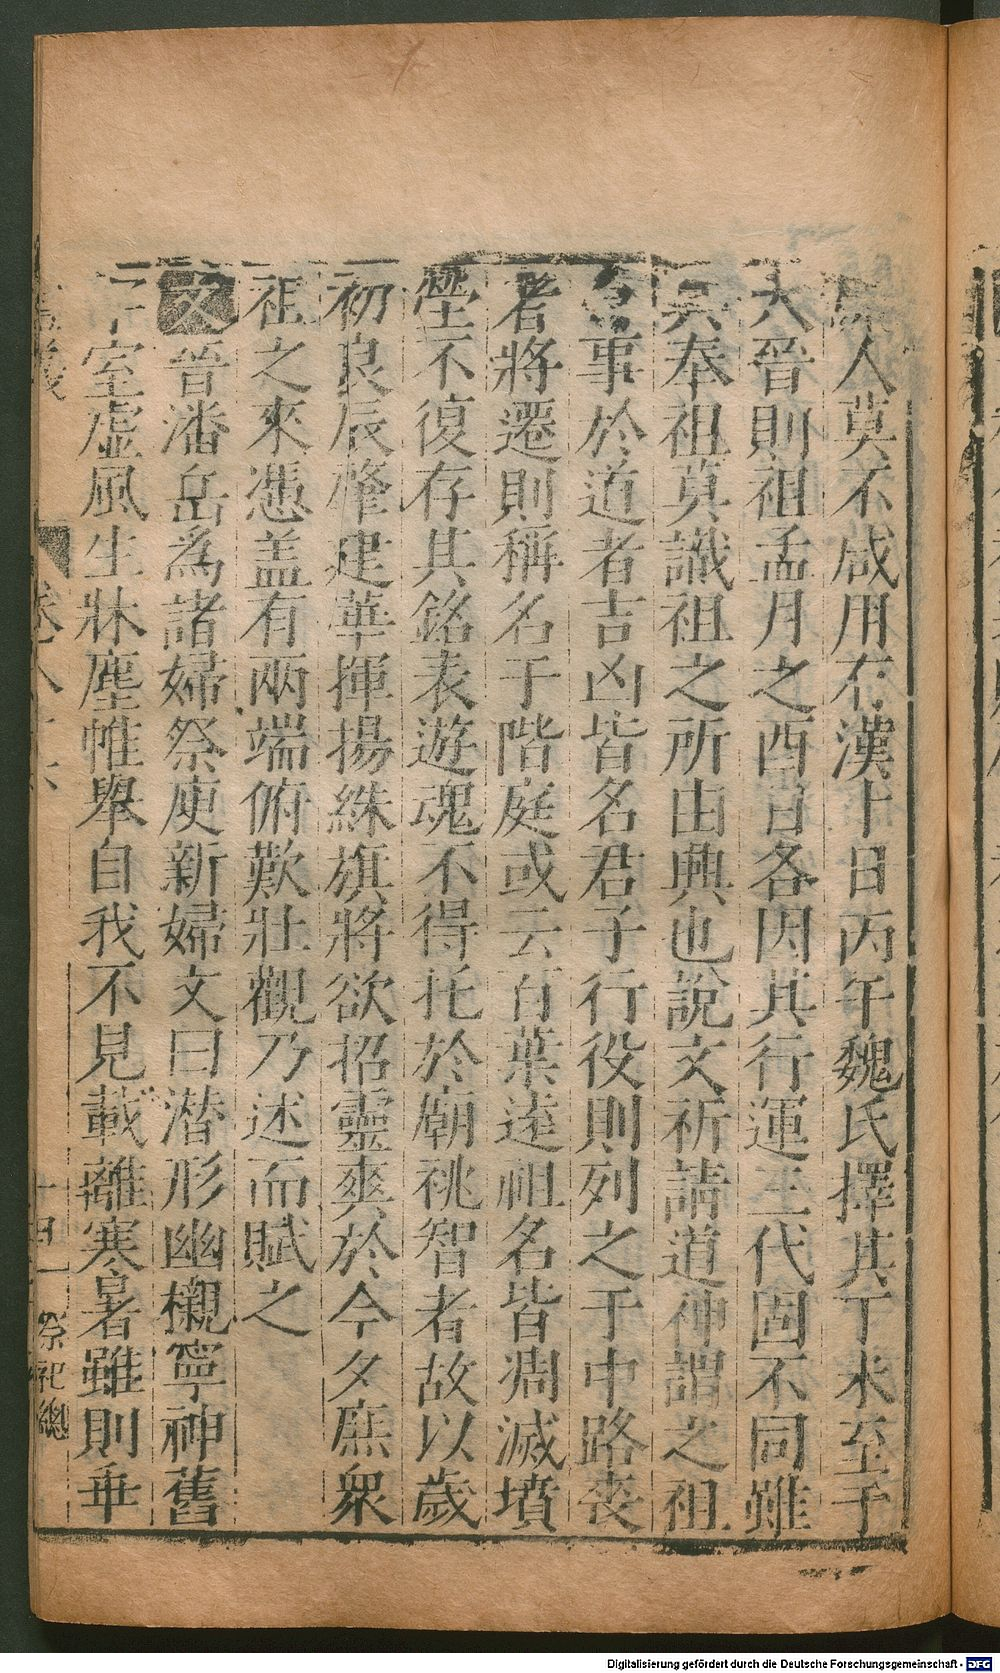 人莫不咸用在漢卜日丙午魏氏擇其丁未至于
大晉則祖孟月之酉日各因其行運三代固不同雖
共奉祖莫識祖之所由興也說文祈請道神謂之祖
事於道者吉凶皆名君子行役則列之于中路喪
者將遷則稱名于階庭或云百葉遠祖名皆凋滅墳
塋不復存其銘表遊魂不得托於廟祧智者故以歲
初良辰肇建華揮揚綵旗將欲招靈爽於今夕庶衆
祖之來憑盖有兩端俯歎壯觀乃述而賦之
文晉潘岳為諸婦祭庾新婦文曰潜形幽櫬寧神舊
宇室虛風生牀塵帷舉自我不見載離寒暑雖則乖
卷 十四 祭祀總
Digitalisierung gefördert durch die Deutsche Forschungsgemeinschaft - DFG